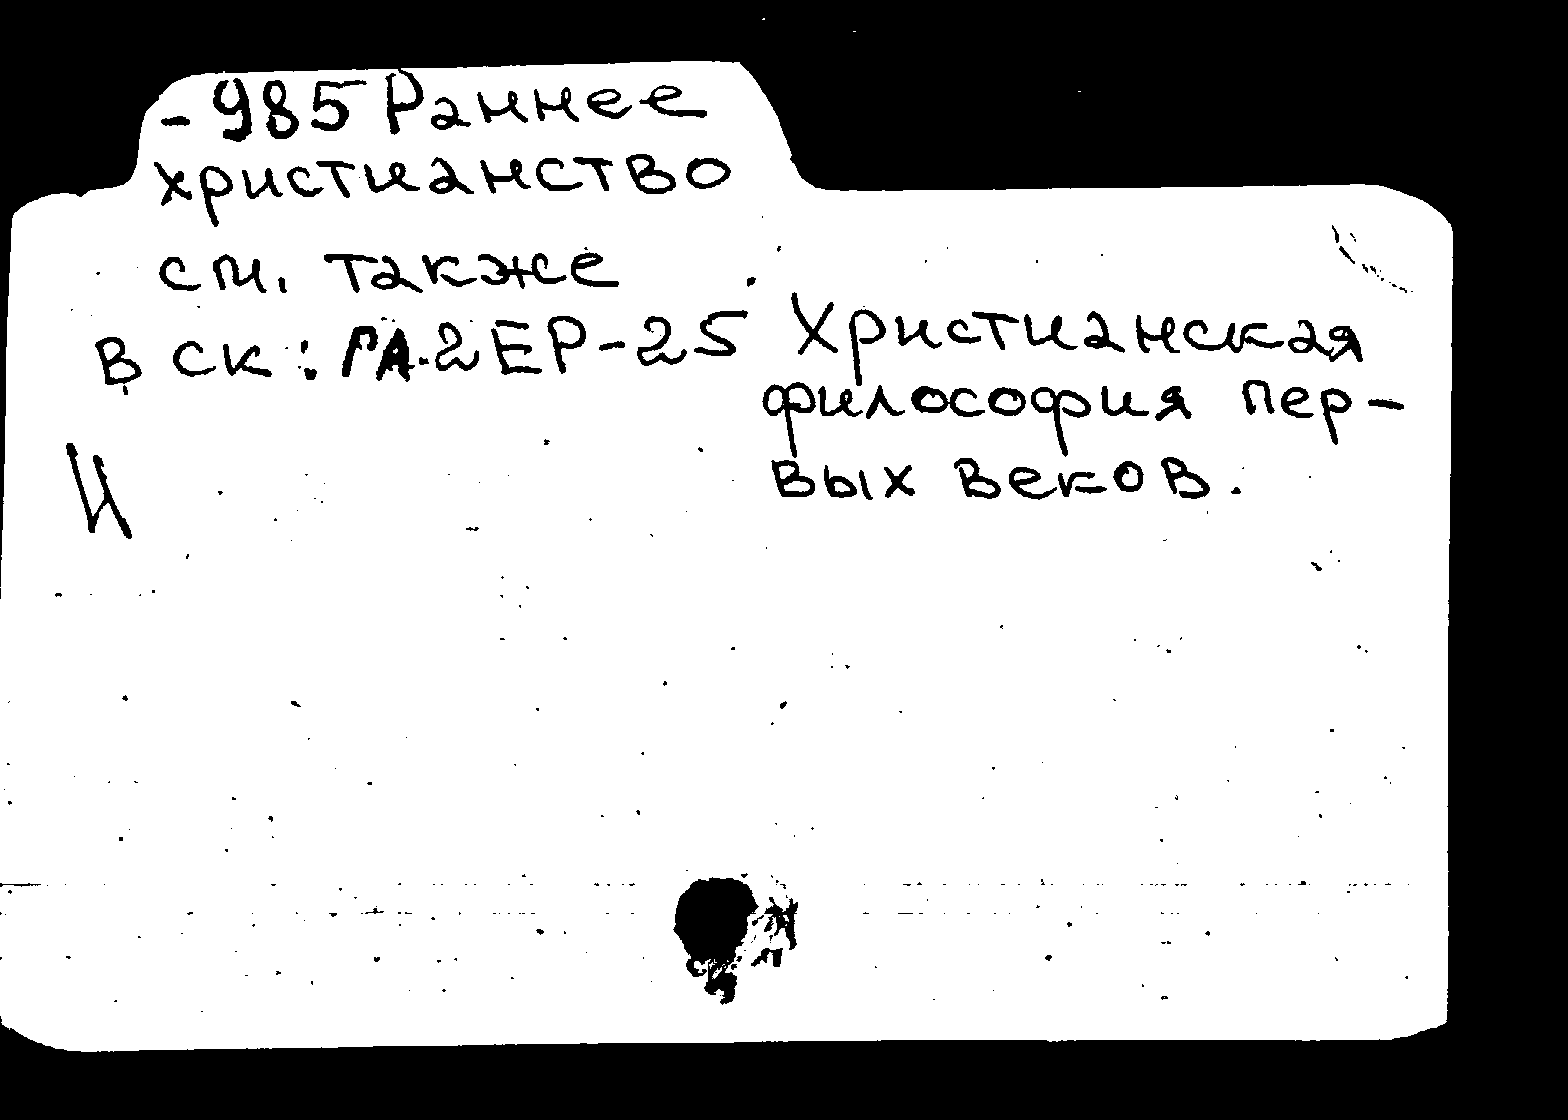 -985 Раннее
христианство
см. также
в ск: ГА.2ЕР-25 Христианская
философия пер-
вых веков.
И